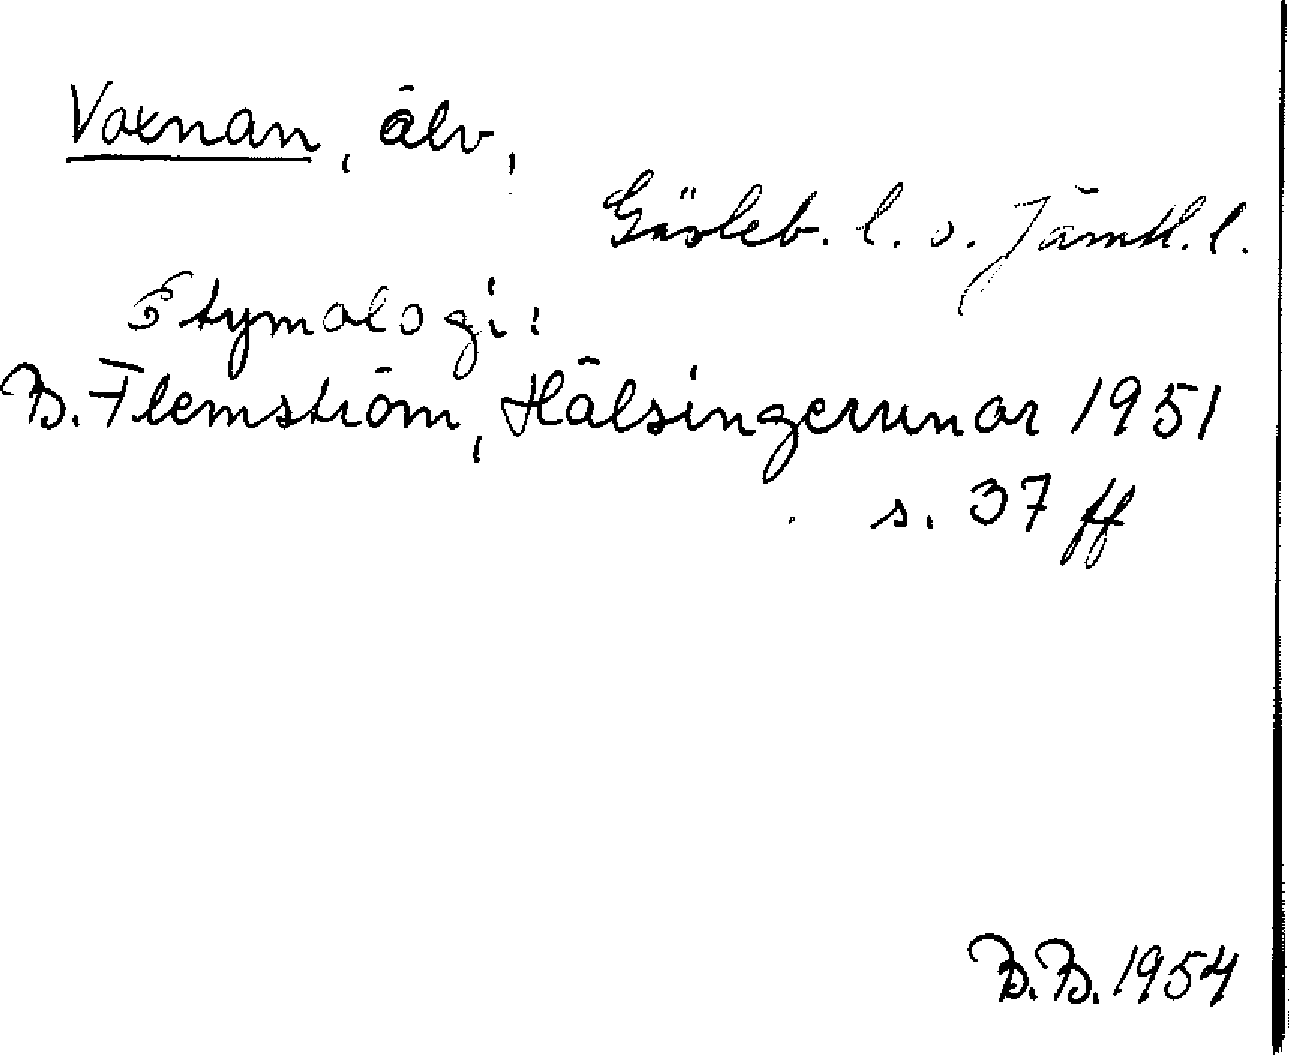 Voxnan, älv,
Gävleb. l. o. Jämtl. l.
Etymologi:
B. Flemström, Hälsingerunor 1951
s. 37 ff
B.B. 1954